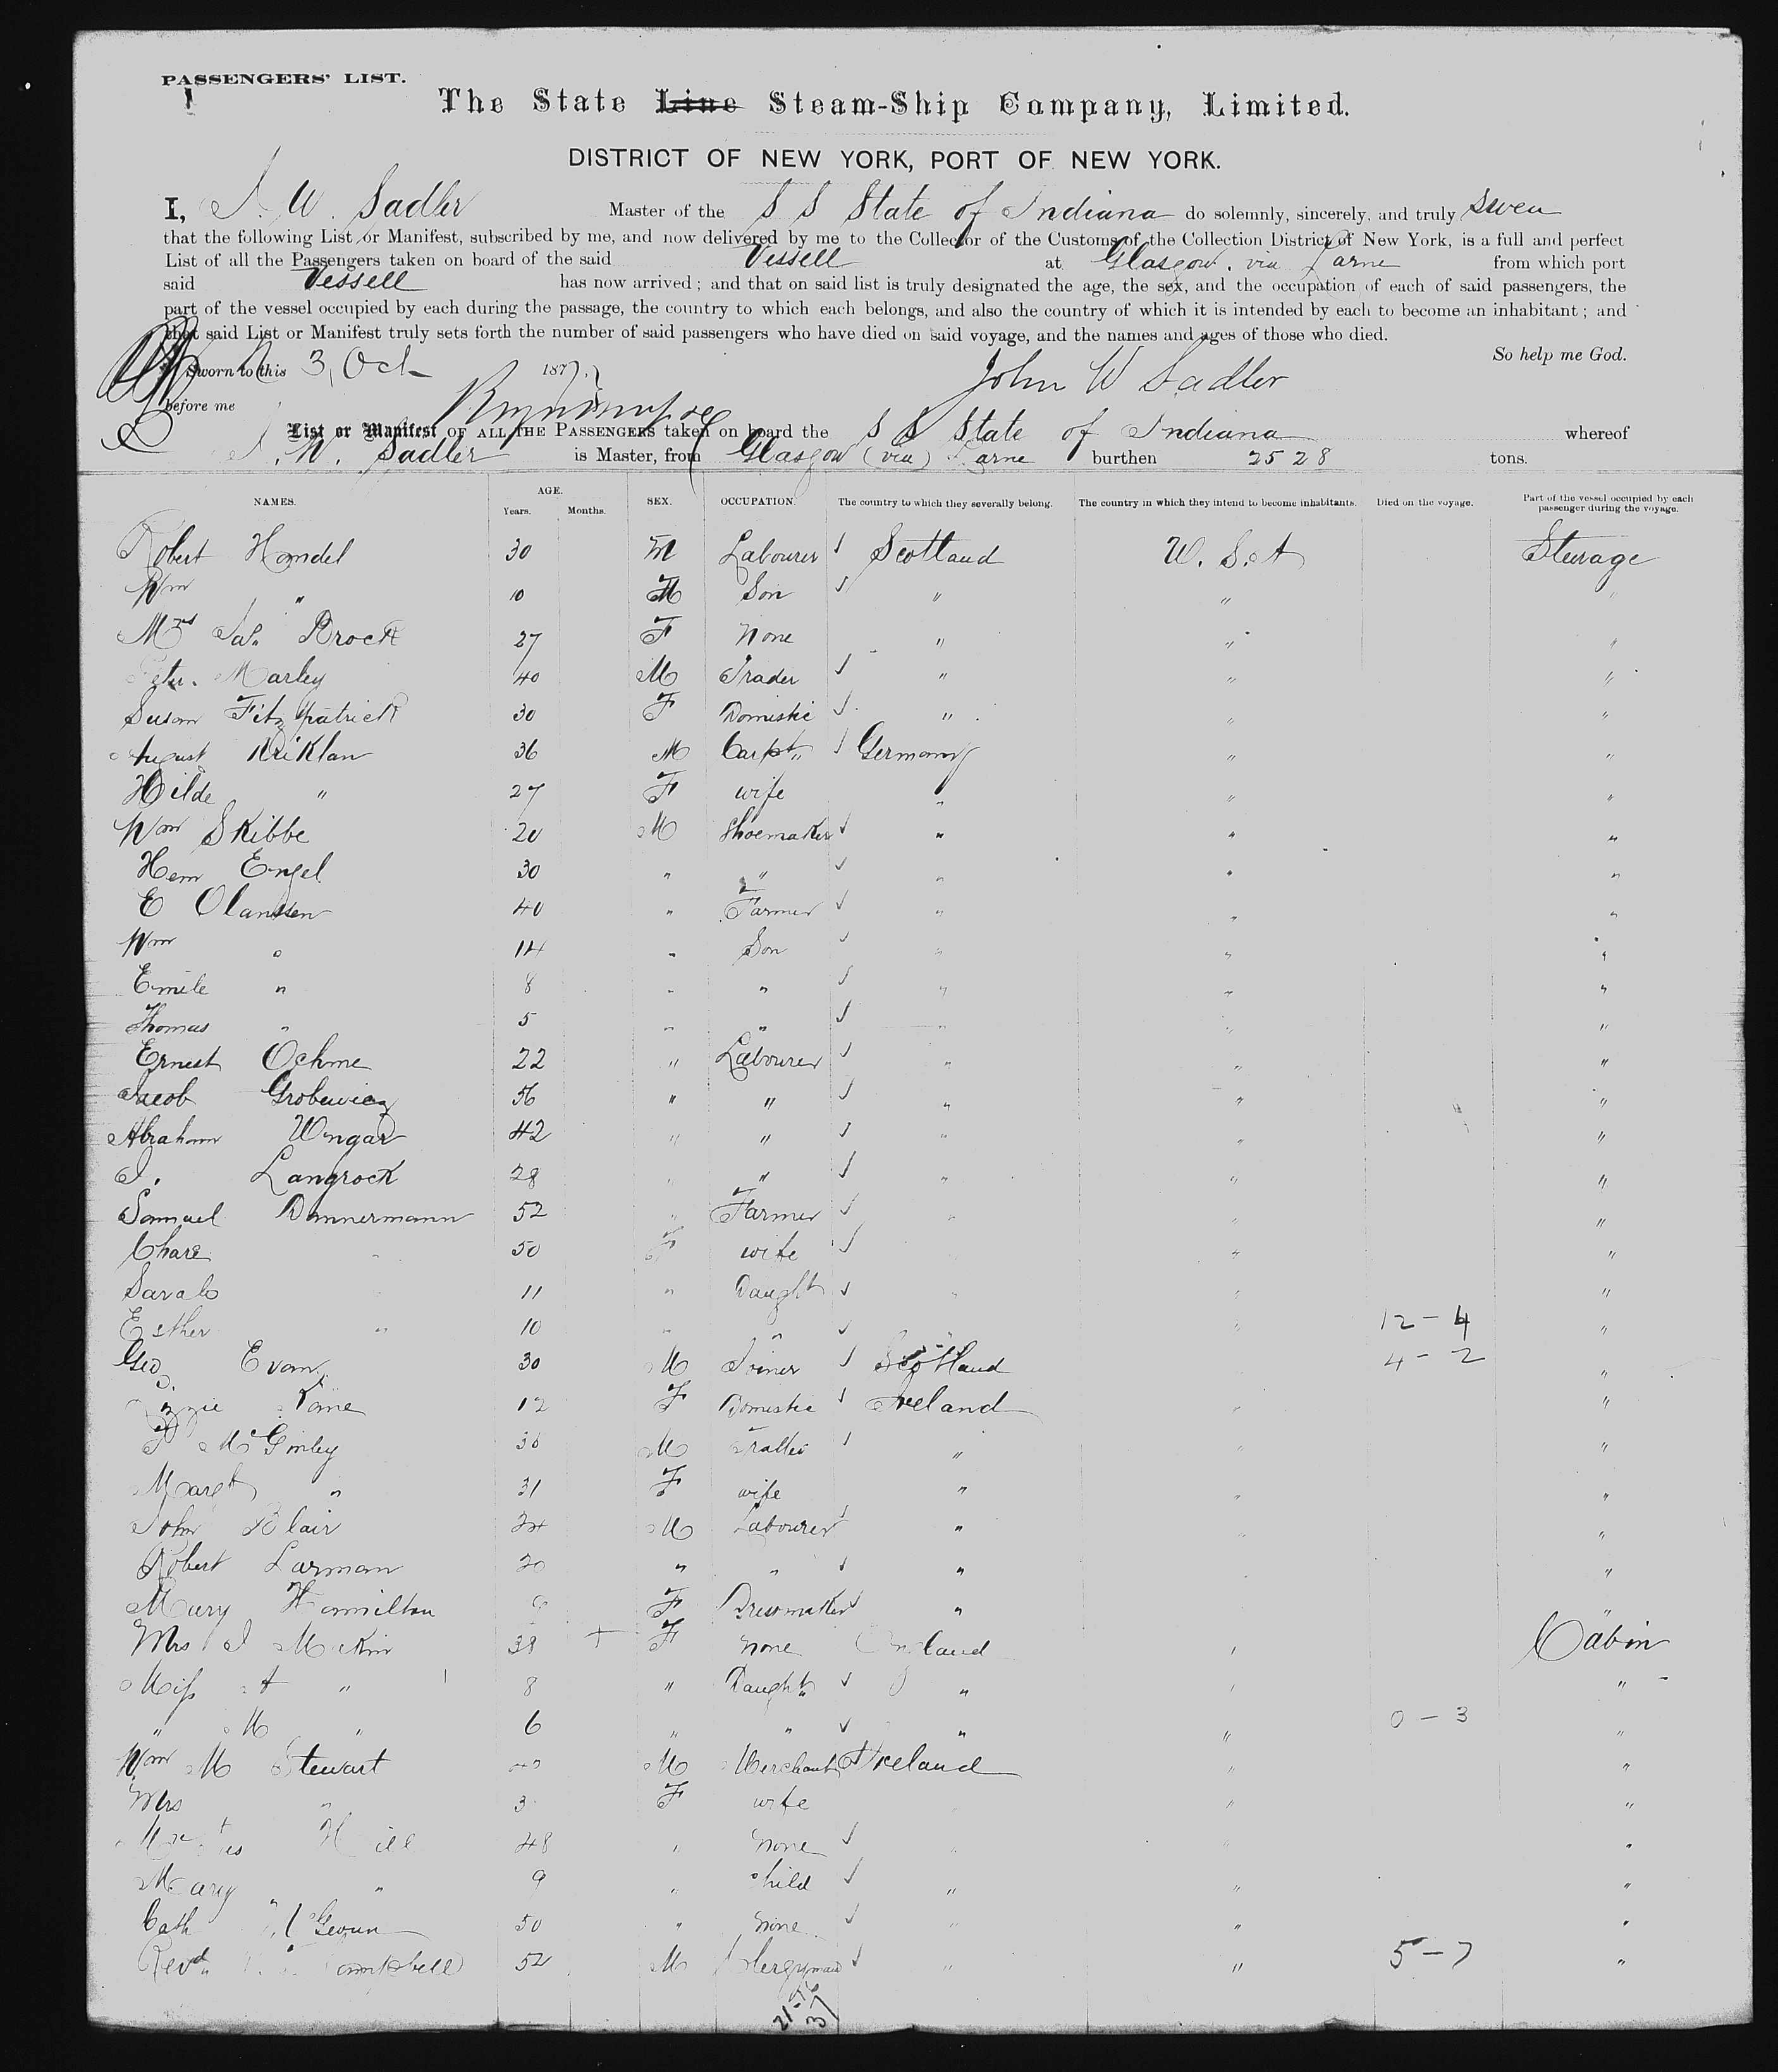 PASSENGERS' LIST.
The State Line Steam-Ship Company, Limited.
DISTRICT OF NEW YORK, PORT OF NEW YORK.
I, J. W. Sadler Master of the S S State of Indiana do solemnly, sincerely, and truly swear
that the following List or Manifest, subscribed by me, and now delivered by me to the Collector of the Customs of the Collection District of New York, is a full and perfect
List of all the Passengers taken on board of the said Vessell at Glasgow. via Larne from which port
said Vessell has now arrived; and that on said list is truly designated the age, the sex, and the occupation of each of said passengers, the
part of the vessel occupied by each during the passage, the country to which each belongs, and also the country of which it is intended by each to become an inhabitant; and
that said List or Manifest truly sets forth the number of said passengers who have died on said voyage, and the names and ages of those who died.
So help me God.
Sworn to this 3, Oct 187
John W Sadler
before me
List or Manifest OF ALL THE PASSENGERS taken on board the S S State of Indiana whereof
J. W. Sadler is Master, from Glasgow (via) Larne burthen 2528 tons.
NAMES. AGE. Years. Months. SEX. OCCUPATION. The country to which they severally belong. The country in which they intend to become inhabitants. Died on the voyage. Part of the vessel occupied by each passenger during the voyage.
Robert 30 M Labourer Scotland U. S. A Steurage
Wm " 10 M Son " " "
Mrs Brock 27 F None " " "
Marley 40 M Trader " " "
Susan Fitzpatrick 30 F Domestic " " "
August 36 M Carpt" Germany " "
Hilde " 27 F wife " " "
Wm Skibbe 20 M Shoemaker " " "
Hem Engel 30 " " " " "
E Olanssen 40 " Farmer " " "
Wm " 14 " Son " " "
Emile " 8 " " " " "
Thomas " 5 " " " " "
Ernest Oehme 22 " Labourer " " "
Jacob 56 " " " " "
Abraham Ungar 42 " " " " "
J. Langrock 28 " " " " "
Samuel Dannermann 52 " Farmer " " "
" 50 F wife " "
Sarah 11 " Daught " " "
Esther " 10 " " " 12 - 4 "
Geo Evans 30 M Joiner Scotland 4 - 2 "
Lizzie Kane 12 F Domestic Ireland " "
P McGinley M " " "
Margt " 31 F wife " " "
John Blair 24 M Labourer " " "
Robert Larman 20 " " " "
Mary Hamilton F Dressmaker " "
Mrs J 38 + F None England " Cabin
Miss A " 8 " Daught " " "
" M " 6 " " " " 0 - 3 "
Wm M Stewart M Merchant Ireland " "
Mrs " F wife " "
Hill 48 " None " " "
Mary " 9 " Child " " "
Cath 50 " None " " "
Revd Campbell 52 M Clergyman " " 5 - 7 "
21 - 16
37